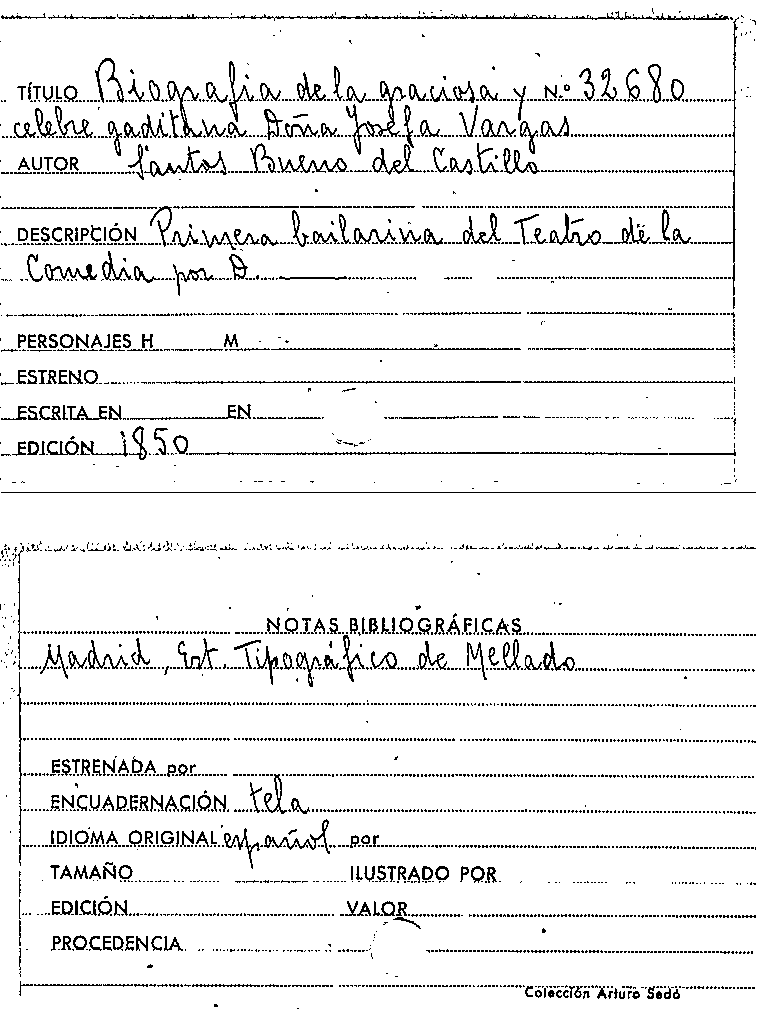 TÍTULO Biografia de la graciosa y N.º 32680
celebre gaditana Doña Josefa Vargas
AUTOR Santos Bueno del Castillo
DESCRIPCIÓN Primera bailarina del Teatro de la
Comedia por D. ______
PERSONAJES H M
ESTRENO
ESCRITA EN EN
EDICIÓN 1850
NOTAS BIBLIOGRÁFICAS
Madrid, Est. Tipográfico de Mellado
ESTRENADA por
ENCUADERNACIÓN tela
IDIOMA ORIGINAL español por
TAMAÑO ILUSTRADO POR
EDICIÓN VALOR
PROCEDENCIA
Colección Arturo Sedó